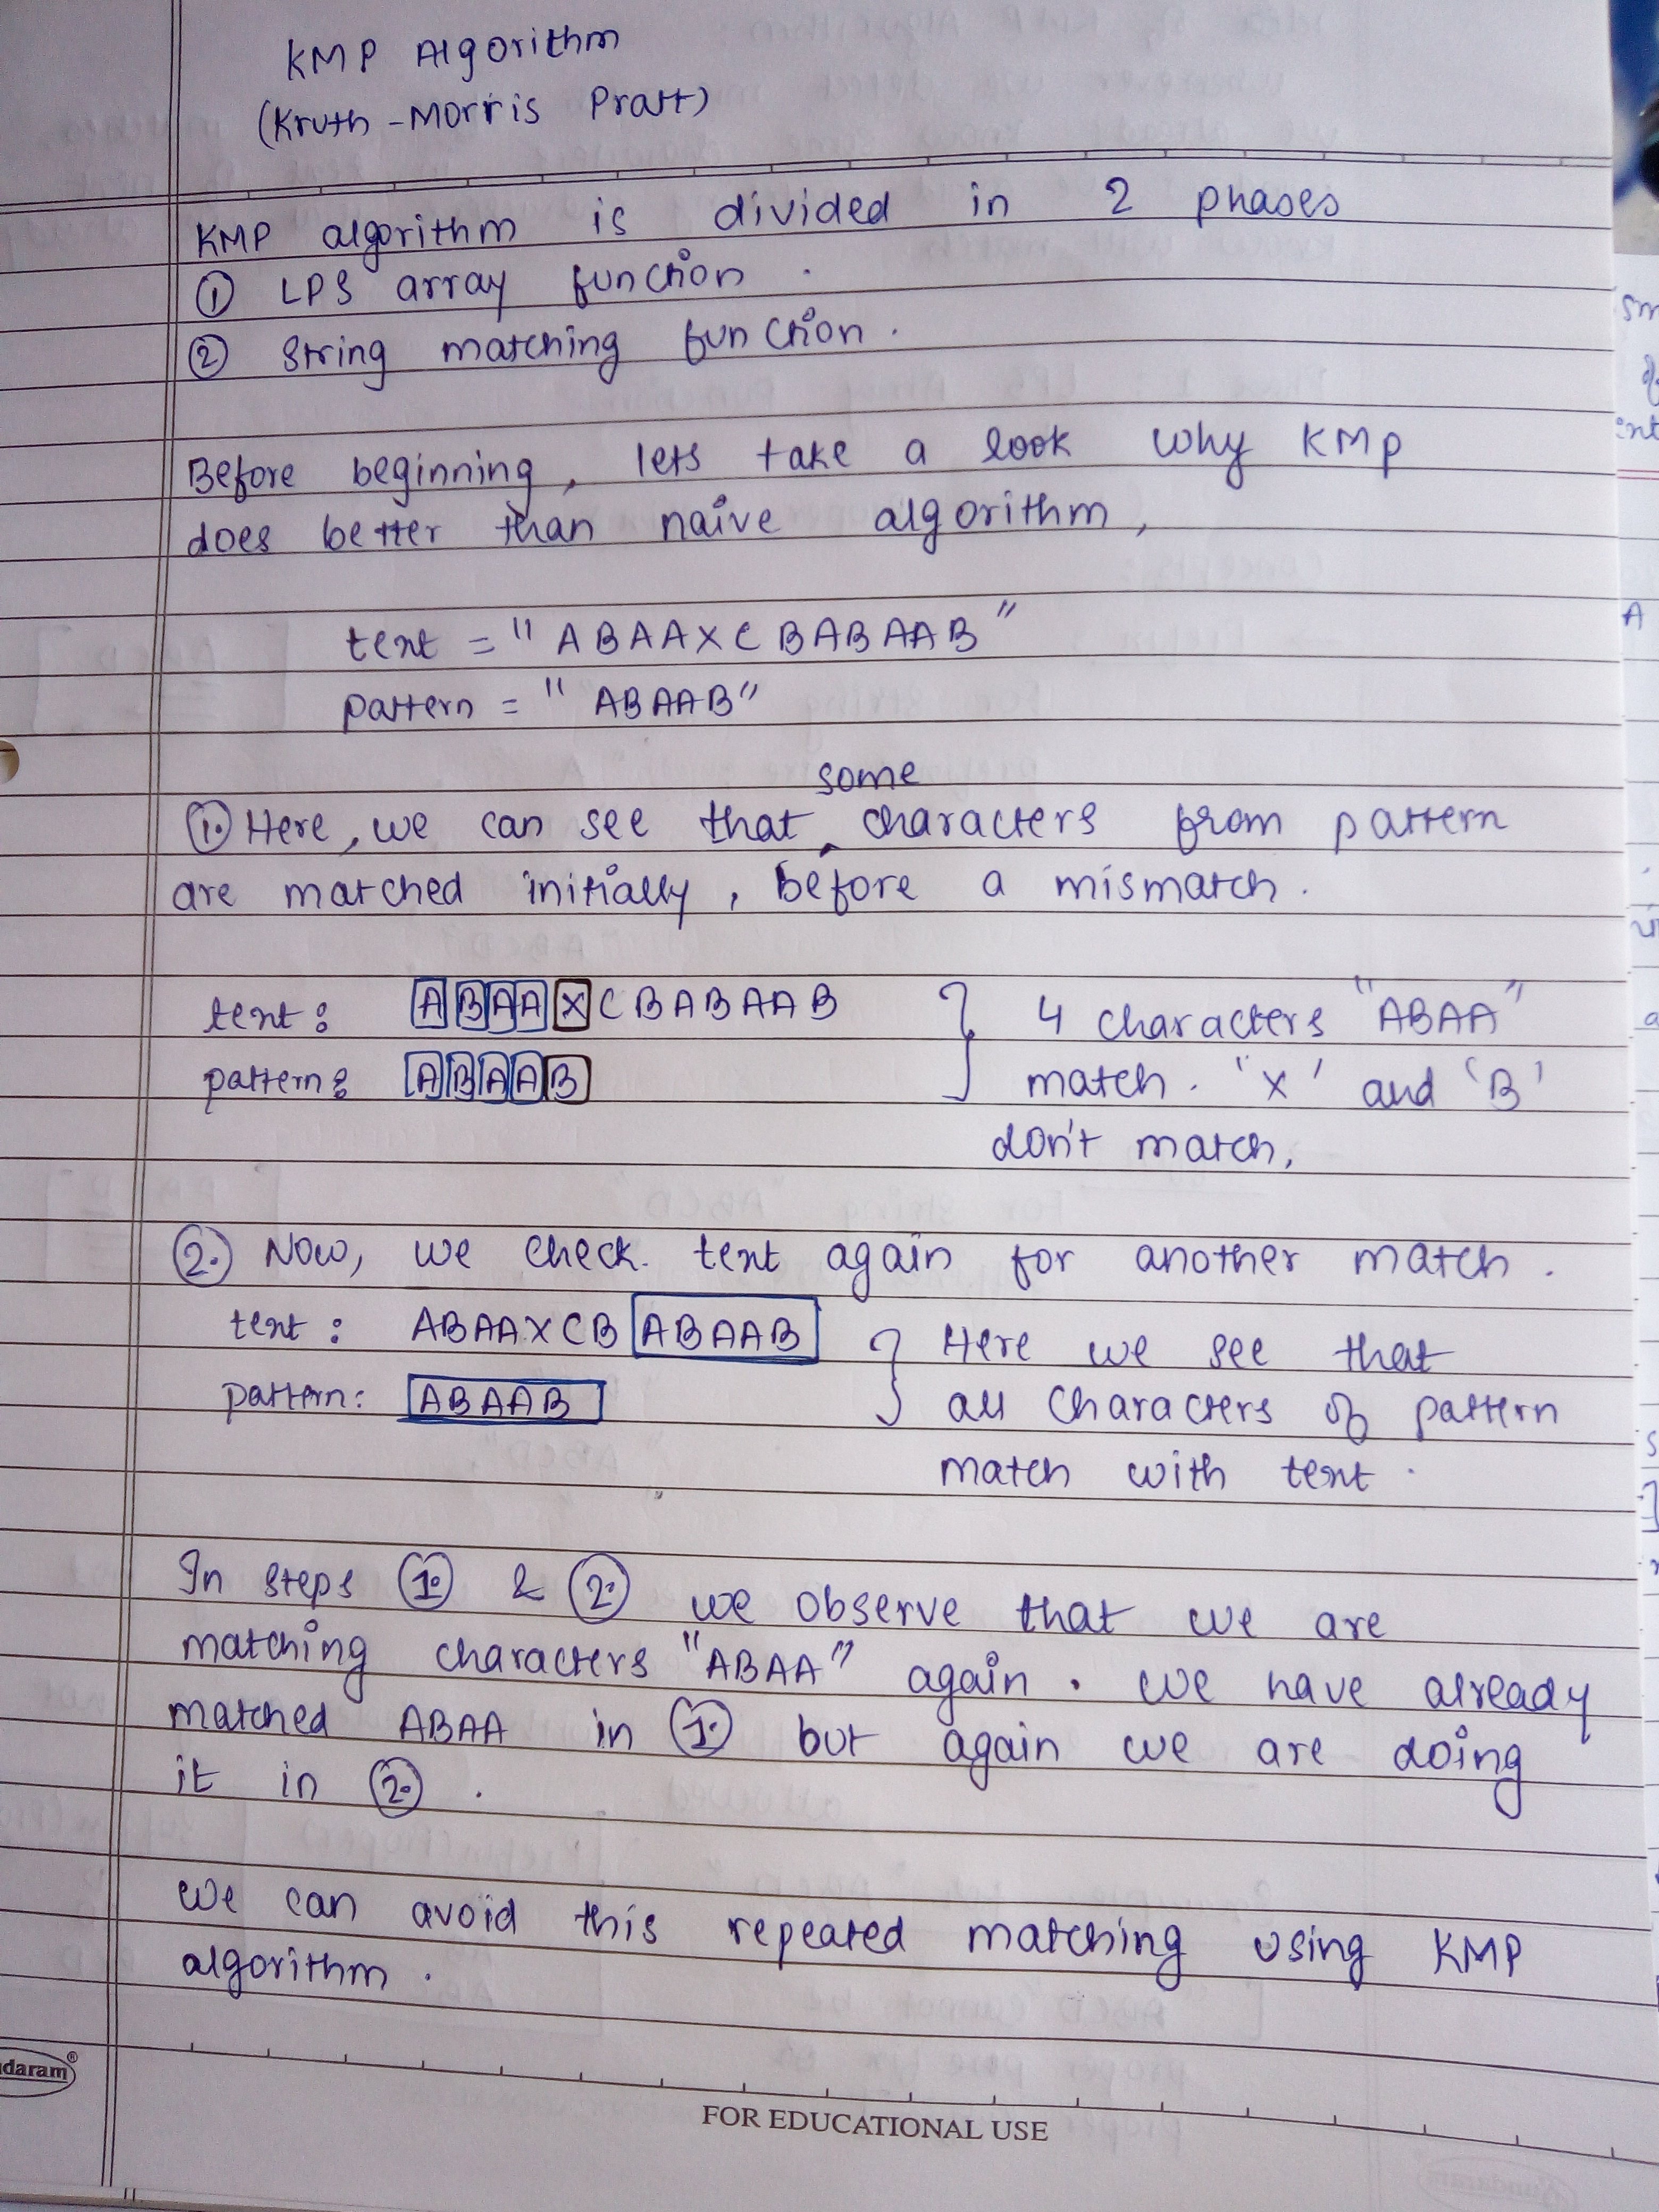 KMP Algorithm
(Kruth-Morris Pratt)
KMP algorithm is divided in 2 phases
① LPS array function.
② String matching function.
Before beginning, lets take a look why KMP
does better than naive algorithm,
text = "ABAAXCBABAAB"
pattern = "ABAAB"
some
①. Here, we can see that ‸ characters from pattern
are matched initially, before a mismatch.
text: ABAAXCBABAAB } 4 characters "ABAA"
pattern: ABAAB match. 'X' and 'B'
don't match,
②. Now, we check. text again for another match.
text: ABAAXCBABAAB } Here we see that
pattern: ABAAB all characters of pattern
match with text.
In steps ①. & ②. we observe that we are
matching characters "ABAA" again. we have already
matched ABAA in ①. but again we are doing
it in ②.
we can avoid this repeated matching using KMP
algorithm.
daram®
FOR EDUCATIONAL USE